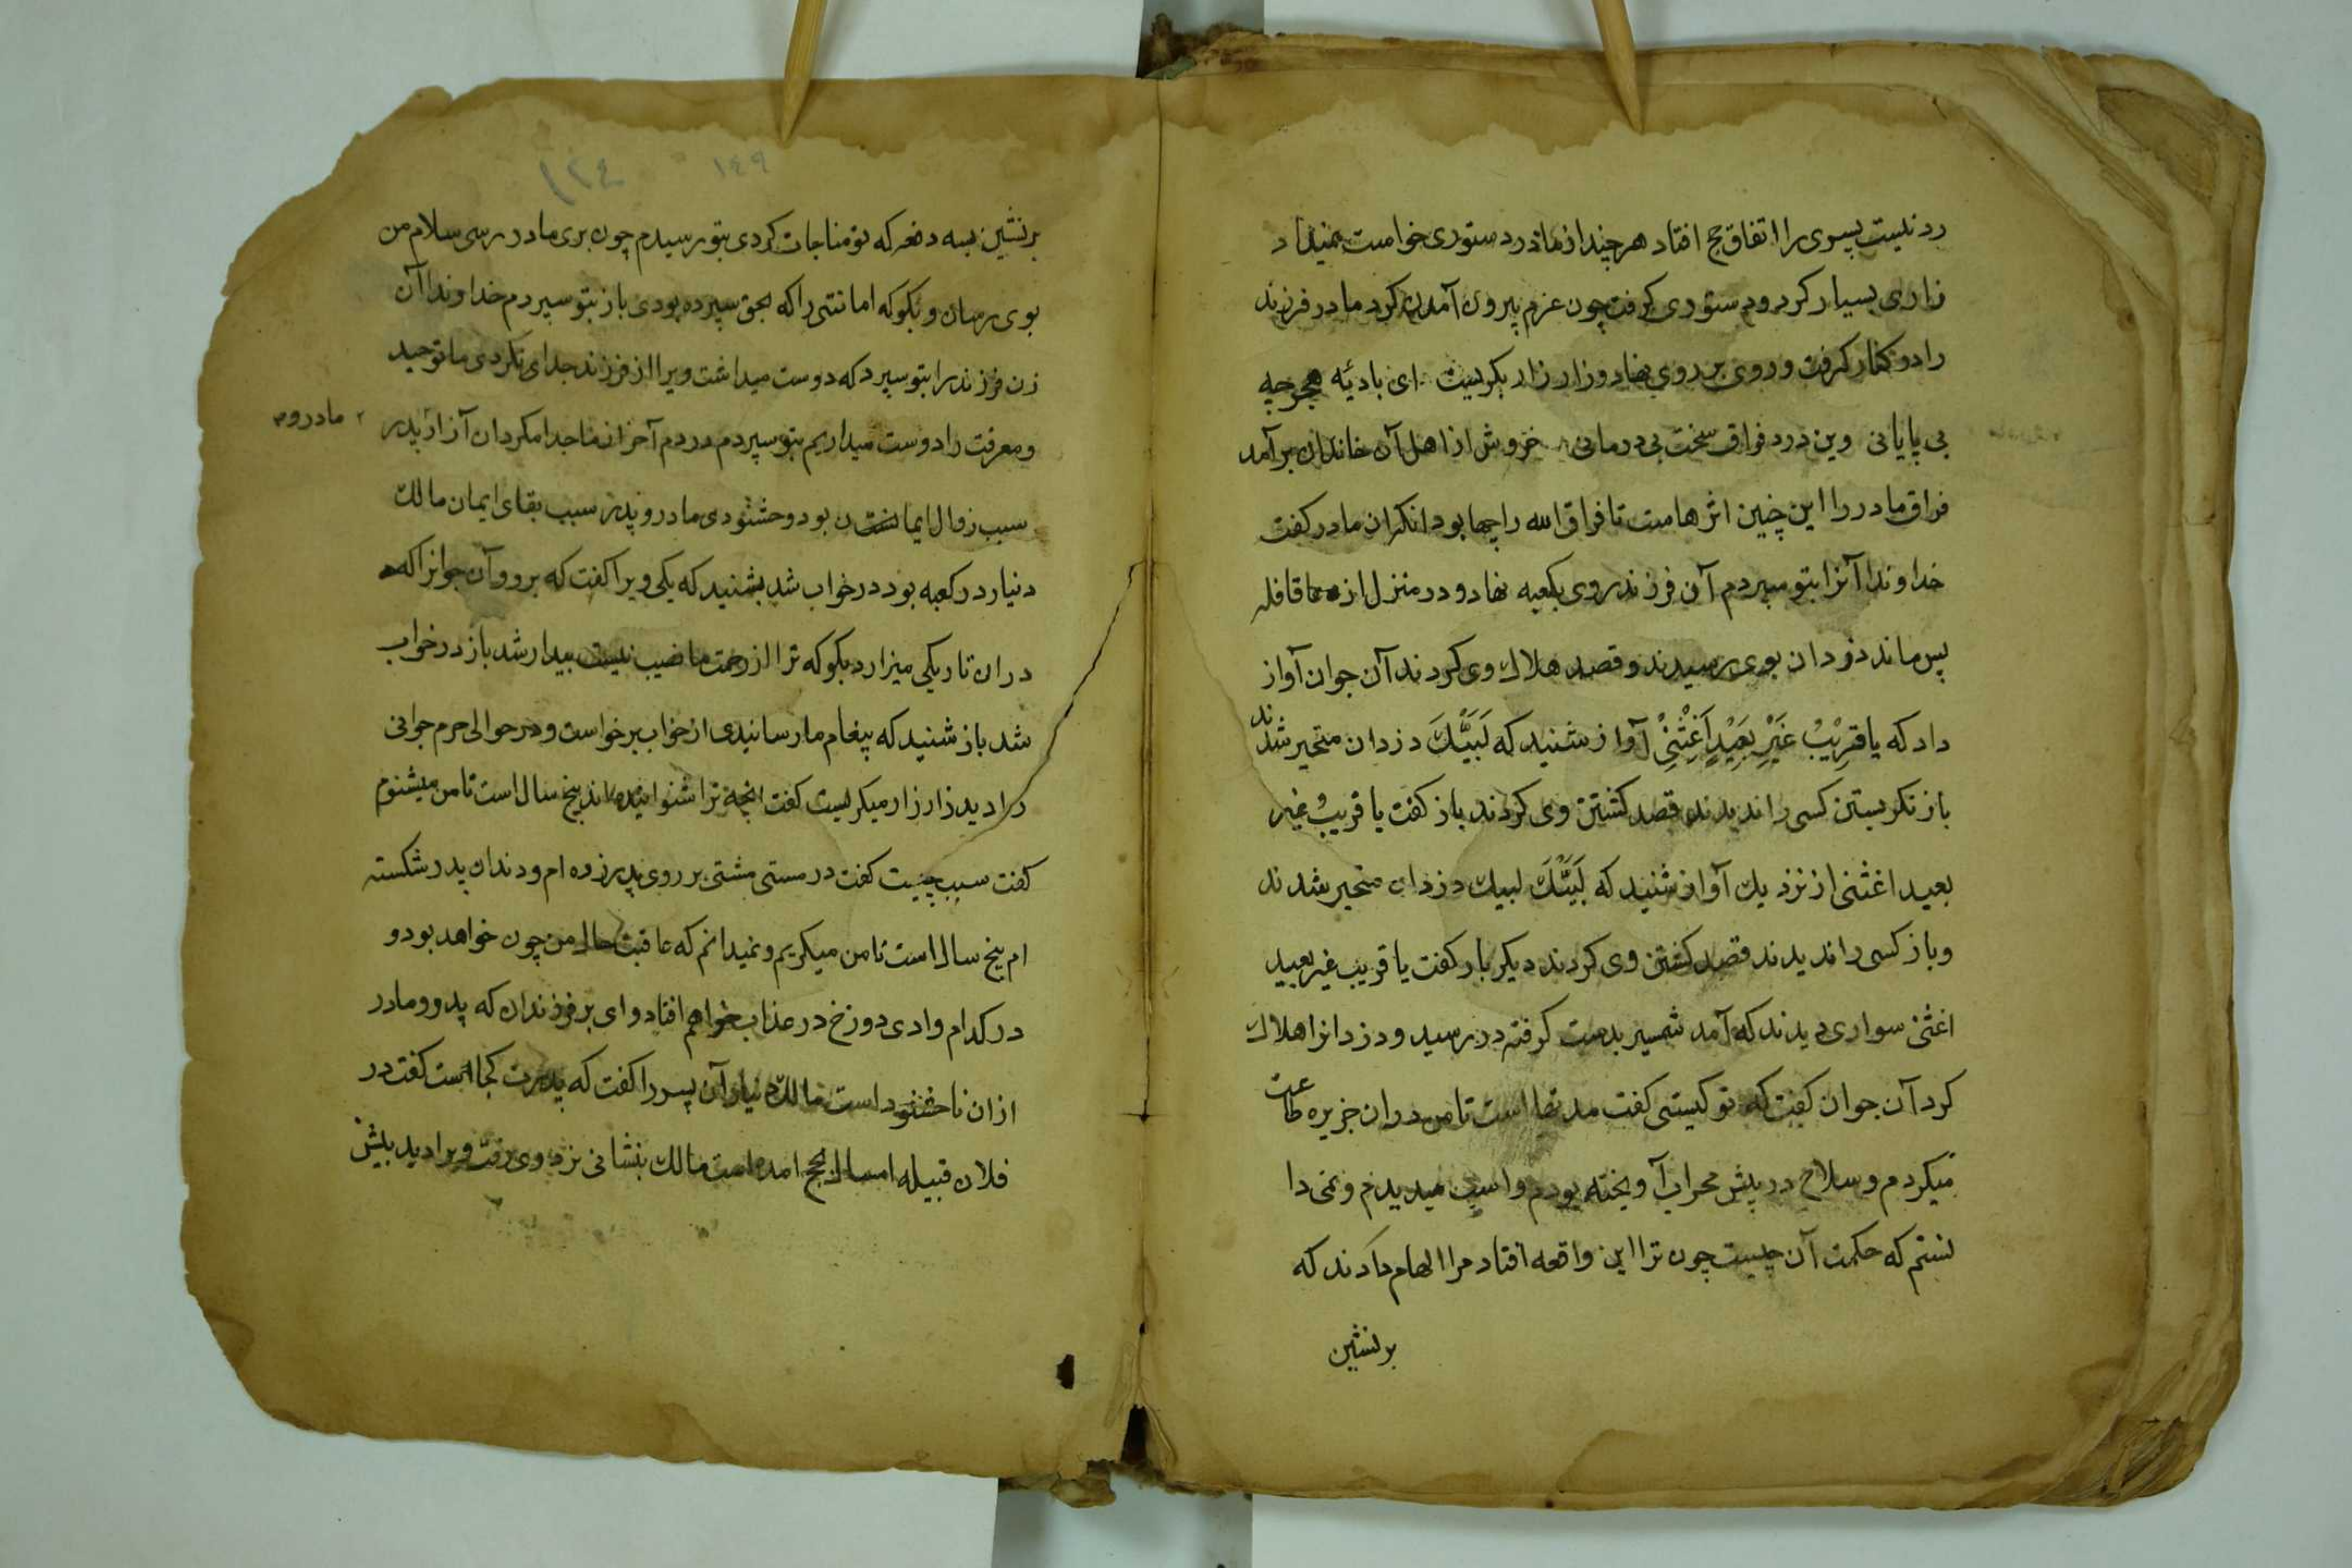 رد نیست پسوی را اتفاق حج افتاد هر چند از مادر دستوری خواست نمیداد
زاری بسیار کرد و دستوری گرفت چون عزم بیرون آمدن کرد مادر فرزند
را در کنار گرفت و روی بر روی نهاد و زار زار بگریست ای بادیٔه هجر چه
بی پایانی وین درد فراق سخت بی درمانی خروش از اهل آن خاندان برآمد
فراق مادر را این چنین اثرهاست تا فراق الله را چها بود انکران مادر کفت
خداوندا آنرا بتو سپردم آن فرزند روی بکعبه نهاد و در منزل از قافله
پس ماند دزدان بوی رسیدند و قصد هلاك وی کردند آن جوان آواز
داد که یا قَرِیْبُ غَیْرِ بَعِیْدٍ اَغِثْنِیْ آواز شنید که لَبَیَّْكَ دزدان متحیر شدند
باز نکریستن کسی را ندیدند قصد کشتن وی کردند باز کفت یا قریبُ غیر
بعید اغثنی از نزدیك آواز شنید که لَبَیَّْكَ لبیك دزدان متحیر شدند
و باز کسی را ندیدند قصد کشتن وی کردند دیکر بار کفت یا قریب غیر بعیید
اغثنی سواری دیدند که آمد شمسیر بدست کرفته در رسید و دزدانرا هلاك
کرد آن جوان کفت که تو کیستی کفت مدتها است تا من دران جزیره طاعت
میکردم و سلاح در پیش محراب آویخته بودم و اسپ میدیدم و نمی دا
نستم که حکمت آن چیست چون ترا این واقعه افتاد مرا الهام دادند که
برنشین
١٤٩
١٢٤
برنشین بسه دفعه که تو مناجات کردی بتو رسیدم چون بری مادر رسی سلام من
بوی رسان و بکو که امانتی را که بحق سپرده بودی باز بتو سپردم خداوندا آن
زن فرزند را بتو سپرد که دوست میداشت ویرا از فرزند جدای نکردی ما توحید
و معرفت را دوست میداریم بتو سپردم در دم آخر از ما جدا مکردان آزار پدر
۲ مادر وم
سبب زوال ایمان بود و خشنودی مادر و پدر سبب بقای ایمان مالك
دنیار در کعبه بود در خواب شد بشنید که یکی ویرا کفت که برو و آن جوانرا که
دران تاریکی میزارد بکو که ترا از رحمت ما نصیب نیست بیدار شد باز در خواب
شد باز شنید که پیغام ما رسانیدی از خواب برخواست و در حوالی حرم جوانی
را دید زار زار میکریست کفت انچه ترا شنوانیده اند پنج سال است تا من میشنوم
کفت سبب چیست کفت در مستی مشتی بر روی پدر زده ام و دندان پدر شکسته
ام پنج سال است تا من میکریم و نمیدانم که عاقبت حال من چون خواهد بود و
در کدام وادی دوزخ در عذاب خواهم افتاد وای بر فرزندان که پدر و مادر
ازان ناخشنود است مالك دنیار آن پسر را کفت که پدرت کجا است کفت در
فلان قبیله امسال بحج امده است مالك بنشانی نزد وی رفت ویرا دید پیش